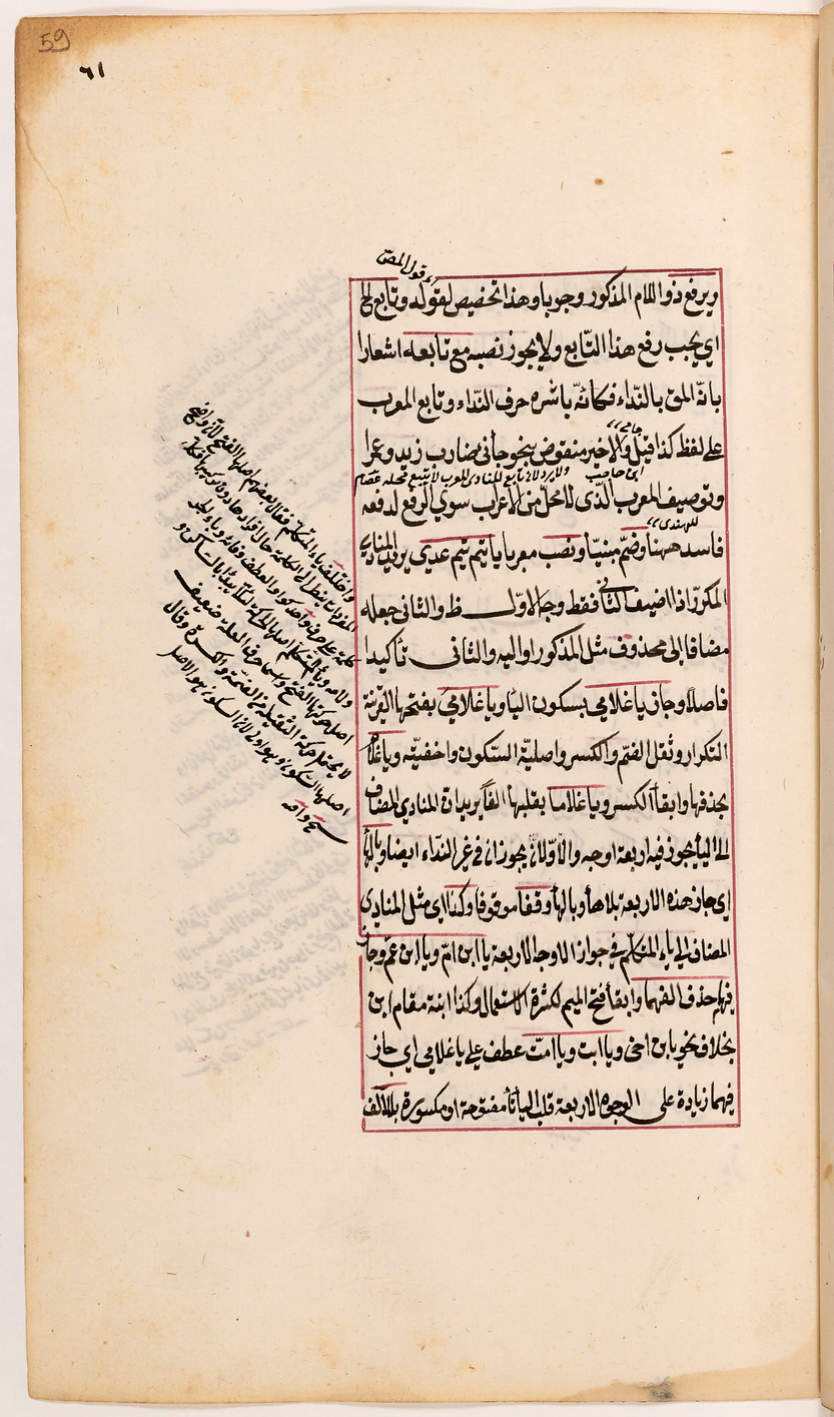 59
٦١
اى قول المصن
ويرفع ذو اللام المذكور وجوبا وهذا تخصيص لقوله وتابع الخ
اي يجب رفع هذا التّابع ولا يجوز نصبه مع تابعه اشعارا
بانّه المق بالنّداء فكانّه باشره حرف النّداء وتابع المعرب
على لفظه كذا قيل والاخير منقوض بنحو جانى ضارب زيد وعمرا
ابن حاجب ولا يرد لان تابع المنادى المعرب لا يتبع محله
وتوصيف المعرب الذى لا محلّ من الاعراب سوي الرفع لدفعه
للهندى
فاسد ههنا وضمّ مبنيّا ونصب معربا يا تيم تيم عدي يريد المنادي
المكرّر اذا اضيف الثّانى فقط وجه الاوّل ظ والثانى جعله
مضافا الى محذوف مثل المذكور او اليه والثانى تأكيدا
فاصلا وجاز يا غلامي بسكون اليا ويا غلاميَ بفتحها لقرينة
التكرار وثقل الضم والكسر واصلية السّكون واخفيّته ويا غلام
بحذفها وابقا الكسر ويا غلاما بقلبها الفا يريد ان المنادي المضاف
الى اليا يجوز فيه اربعة اوجه والاوّلان يجوزان في غير النّداء ايضا وبالها
اي جاز هذه الاربعة بلا ها وبالها وقفا موقوفا وكذا اى مثل المنادي
المضاف الى ياء المتكلّم في جواز الاوجه الاربعة يا ابن امّ ويا ابن عمّ وجاز
فيهما حذف الفهما وابقا فتح الميم لكثرة الاستعمال وكذا ابنة مقام ابن
بخلاف نحو يا بن اخى ويا ابت ويا امت عطف على يا غلامي اي جاز
فيهما زيادة على الوجوه الاربعة قلب اليا تا مفتوحة او مكسورة بلا الف
واختلف ياء المتكلم فقال بعضهم اصلها الفتح لان واضع
المفردات ينظر الى الكلمة حال افرادها دون تركيبها فكل
كلمة على حرف واحد كواو العطف وفائه وباء الجر
ولامه وياء المتكلم اصلها الحركة لئلا يبتدأ بالساكن و
اصل حركتها الفتح
لا يحتمل حركة الثقيلة من الضمة والكسرة وقال
اصلها السكون وهو اولى لان السكون هو الاصل